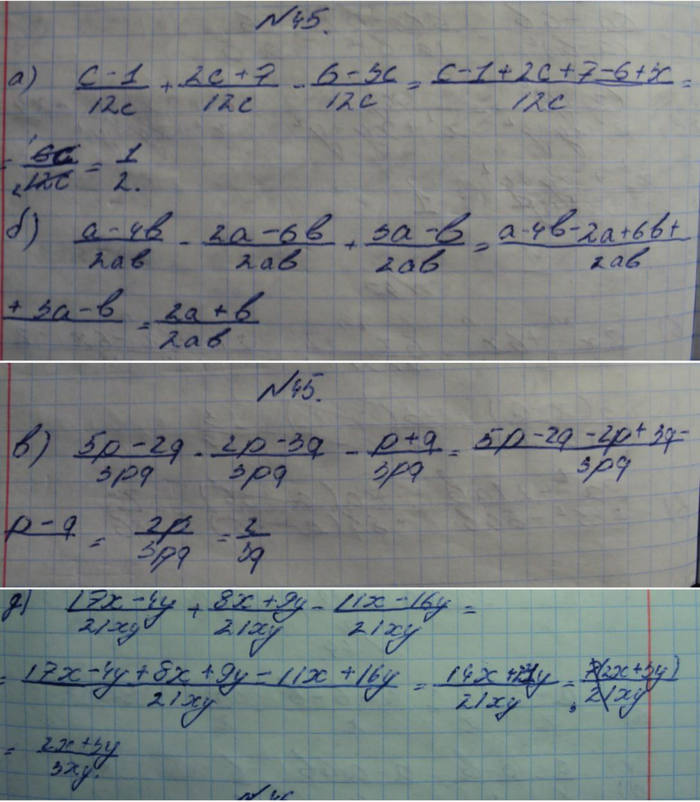 N45.
а) c-1/12c + 2c+7/12c - 6-3c/12c = c-1+2c+7-6+3c/12c =
= 6c/12c = 1/2.
б) a-4b/2ab - 2a-6b/2ab + 3a-b/2ab = a-4b-2a+6b+/2ab
+3a-b = 2a+b/2ab
N45.
в) 5p-2q/3pq - 2p-3q/3pq - p+q/3pq = 5p-2q-2p+3q-/3pq
p-q = 2p/3pq = 2/3q
д) 17x-4y/21xy + 8x+9y/21xy - 11x-16y/21xy =
= 17x-4y+8x+9y-11x+16y/21xy = 14x+21y/21xy = 7(2x+3y)/21xy
= 2x+3y/3xy.